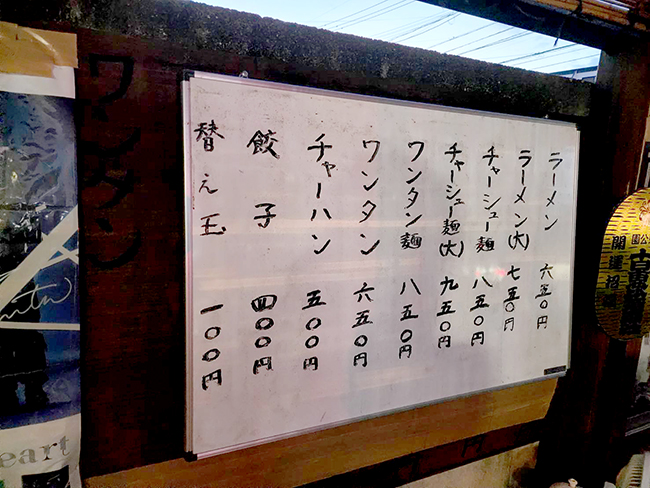 ラーメン 六五〇円
ラーメン(大) 七五〇円
チャーシュー麺 八五〇円
チャーシュー麺(大) 九五〇円
ワンタン麺 八五〇円
ワンタン 六五〇円
チャーハン 五〇〇円
餃子 四〇〇円
替え玉 一〇〇円
ワンタン
開運招福
eart